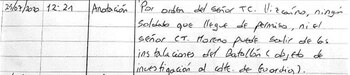 23/07/2010 12:21 Anotación Por orden del señor TC. Vizcaíno, ningún
soldado que llegue de permiso, ni el
señor CT Moreno puede salir de las
instalaciones del Batallón (objeto de
investigación al cdte. de Guardia).